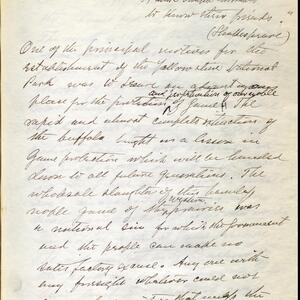 to know their friends."
(Shakespeare)
One of the principal motives for the
establishment of the Yellowstone National
Park was to have an
and propagation of our noble
place for the protection of game. The
rapid and almost complete extinction of
the buffalo taught us a lesson in
Game protection which will be handed
down to all future generations. The
wholesale slaughter of this harmless
western
noble game of the prairies was
a national sin for which the Government
and the people can made no
satisfactory excuse. Any one with
any foresight whatever could not